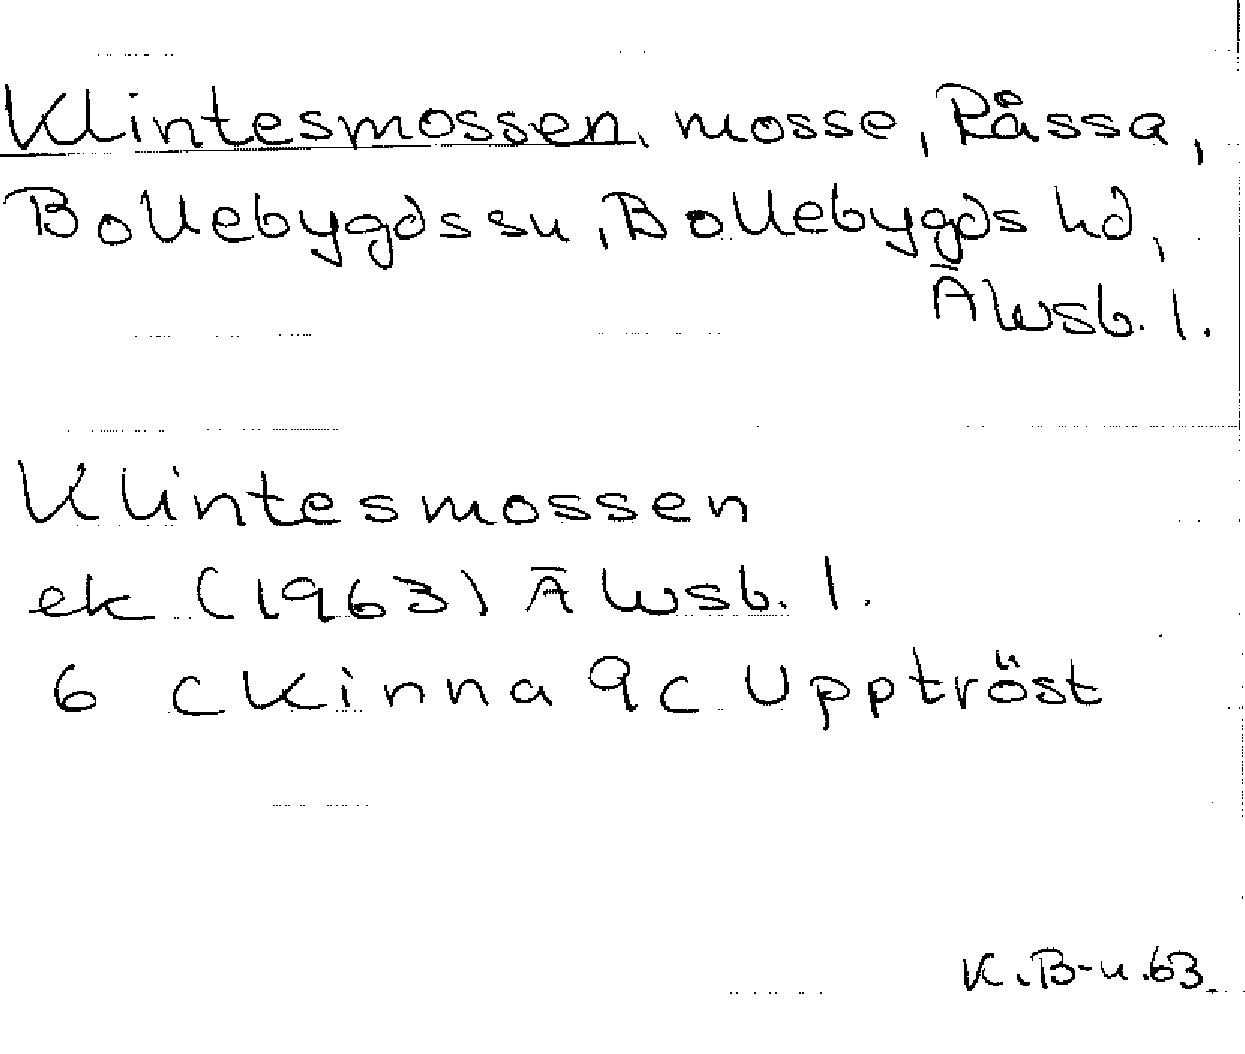 Klintesmossen, mosse, Råssa,
Bollebygds sn, Bollebygds hd,
Älvsb. l.
Klintesmossen
ek (1963) Älvsb. l.
6 c Kinna 9c Upptröst
K.B-n.63.